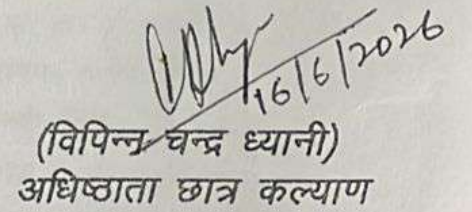 16/6/2026
(विपिन्न चन्द्र ध्यानी)
अधिष्ठाता छात्र कल्याण